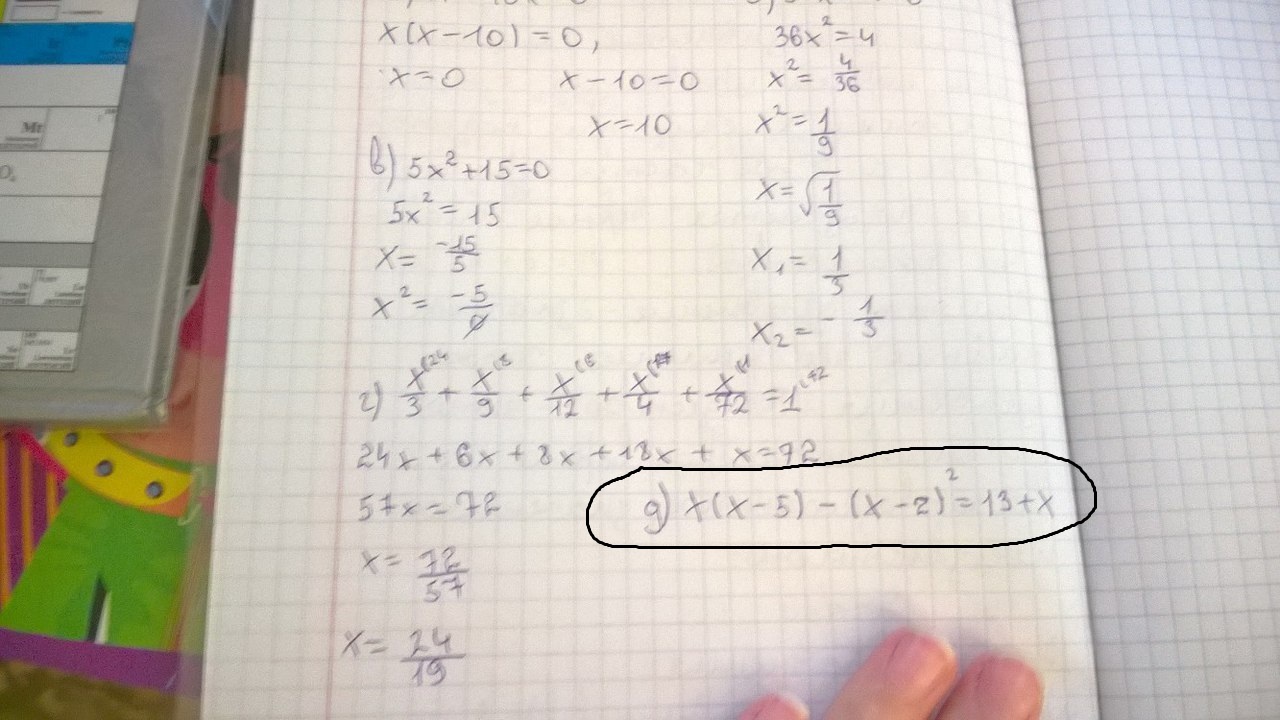 x(x-10)=0,
x=0 x-10=0
x=10
36x²=4
x²=4/36
x²=1/9
x=√1/9
x₁=1/3
x₂=-1/3
в) 5x²+15=0
5x²=15
x=-15/5
x²=-5/
г) x/3+x/9+x/12+x/4+x/72=1
24x+6x+8x+18x+x=72
57x=72
x=72/57
x=24/19
д) x(x-5)-(x-2)²=13+x
Mt